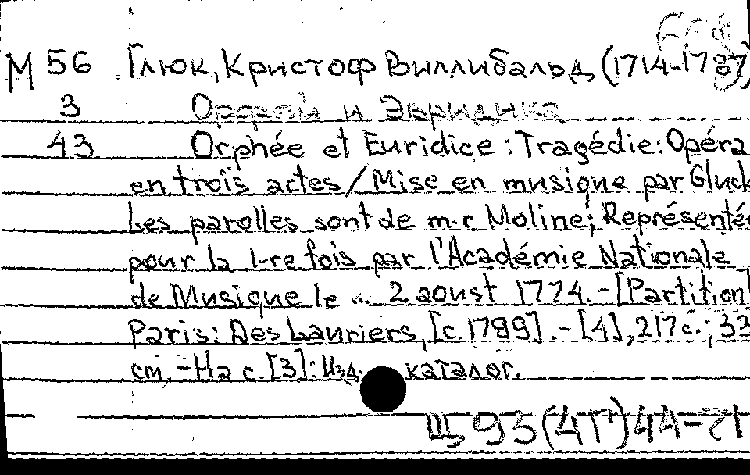 М 56 Глюк, Кристоф Виллибальд (1714-1787)
3 Орфей и Эвридика
43 Orphée et Euridice : Tragédie: Opéra
en trois actes / Mise en musique par Gluck
Les parolles sont de m-r Moline; Représentée
pour la 1-re fois par l'Académie Nationale
de Musique le .. 2 aoust 1774. - [Partition]
Paris: Des Lauriers, [c.1799]. - [4], 217 с.; 33
cm. - На с. [3]: Изд. каталог.
Щ 93(4Г)44-21